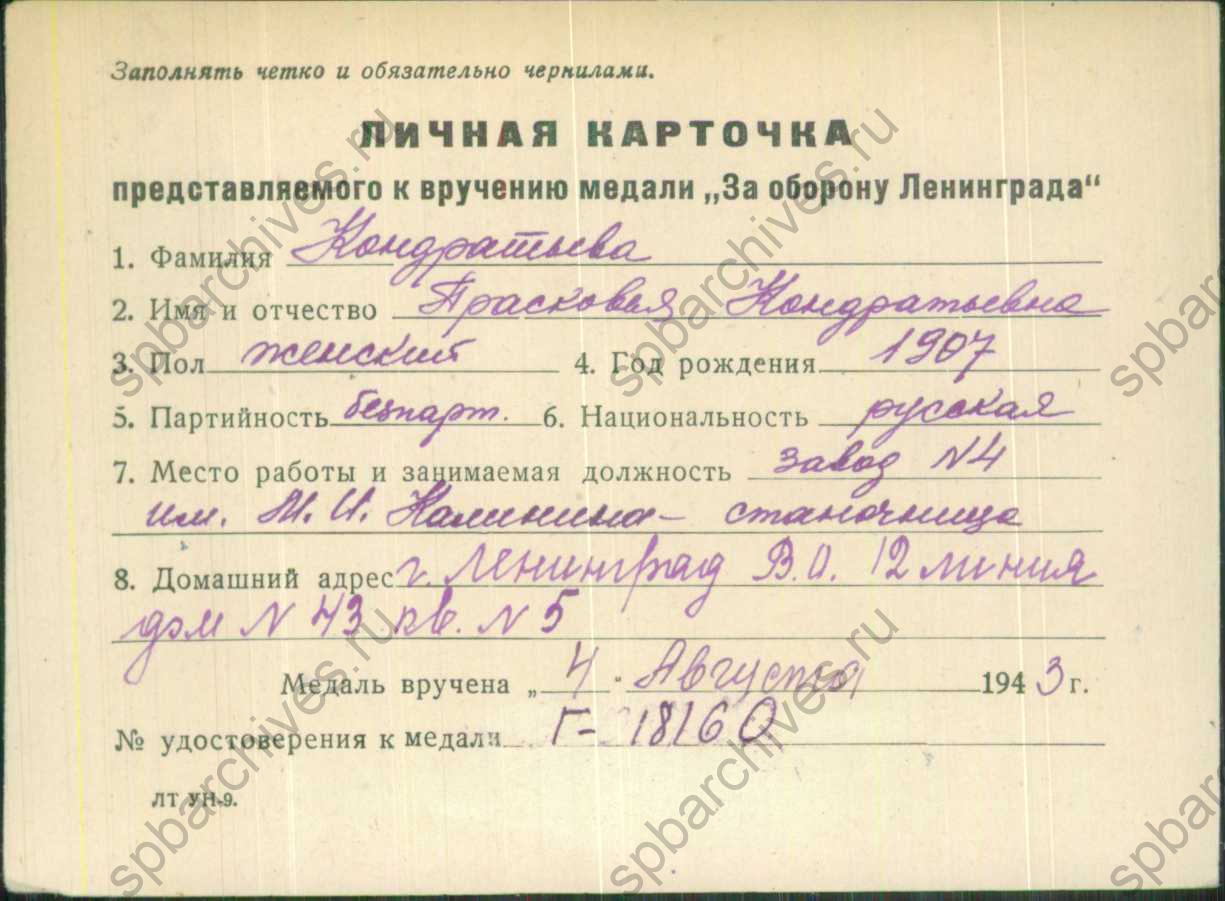 Заполнять четко и обязательно чернилами.
ЛИЧНАЯ КАРТОЧКА
представляемого к вручению медали „За оборону Ленинграда“
1. Фамилия Кондратьева
2. Имя и отчество Прасковья Кондратьевна
3. Пол женский 4. Год рождения 1907
5. Партийность безпарт. 6. Национальность русская
7. Место работы и занимаемая должность завод N4
им. М. И. Калинина – станочница
8. Домашний адрес г. Ленинград В.О. 12 линия
дом N 43 кв. N 5
Медаль вручена „4“ Августа 1943 г.
№ удостоверения к медали Г- 18160
ЛТ УН-9.
spbarchives.ru